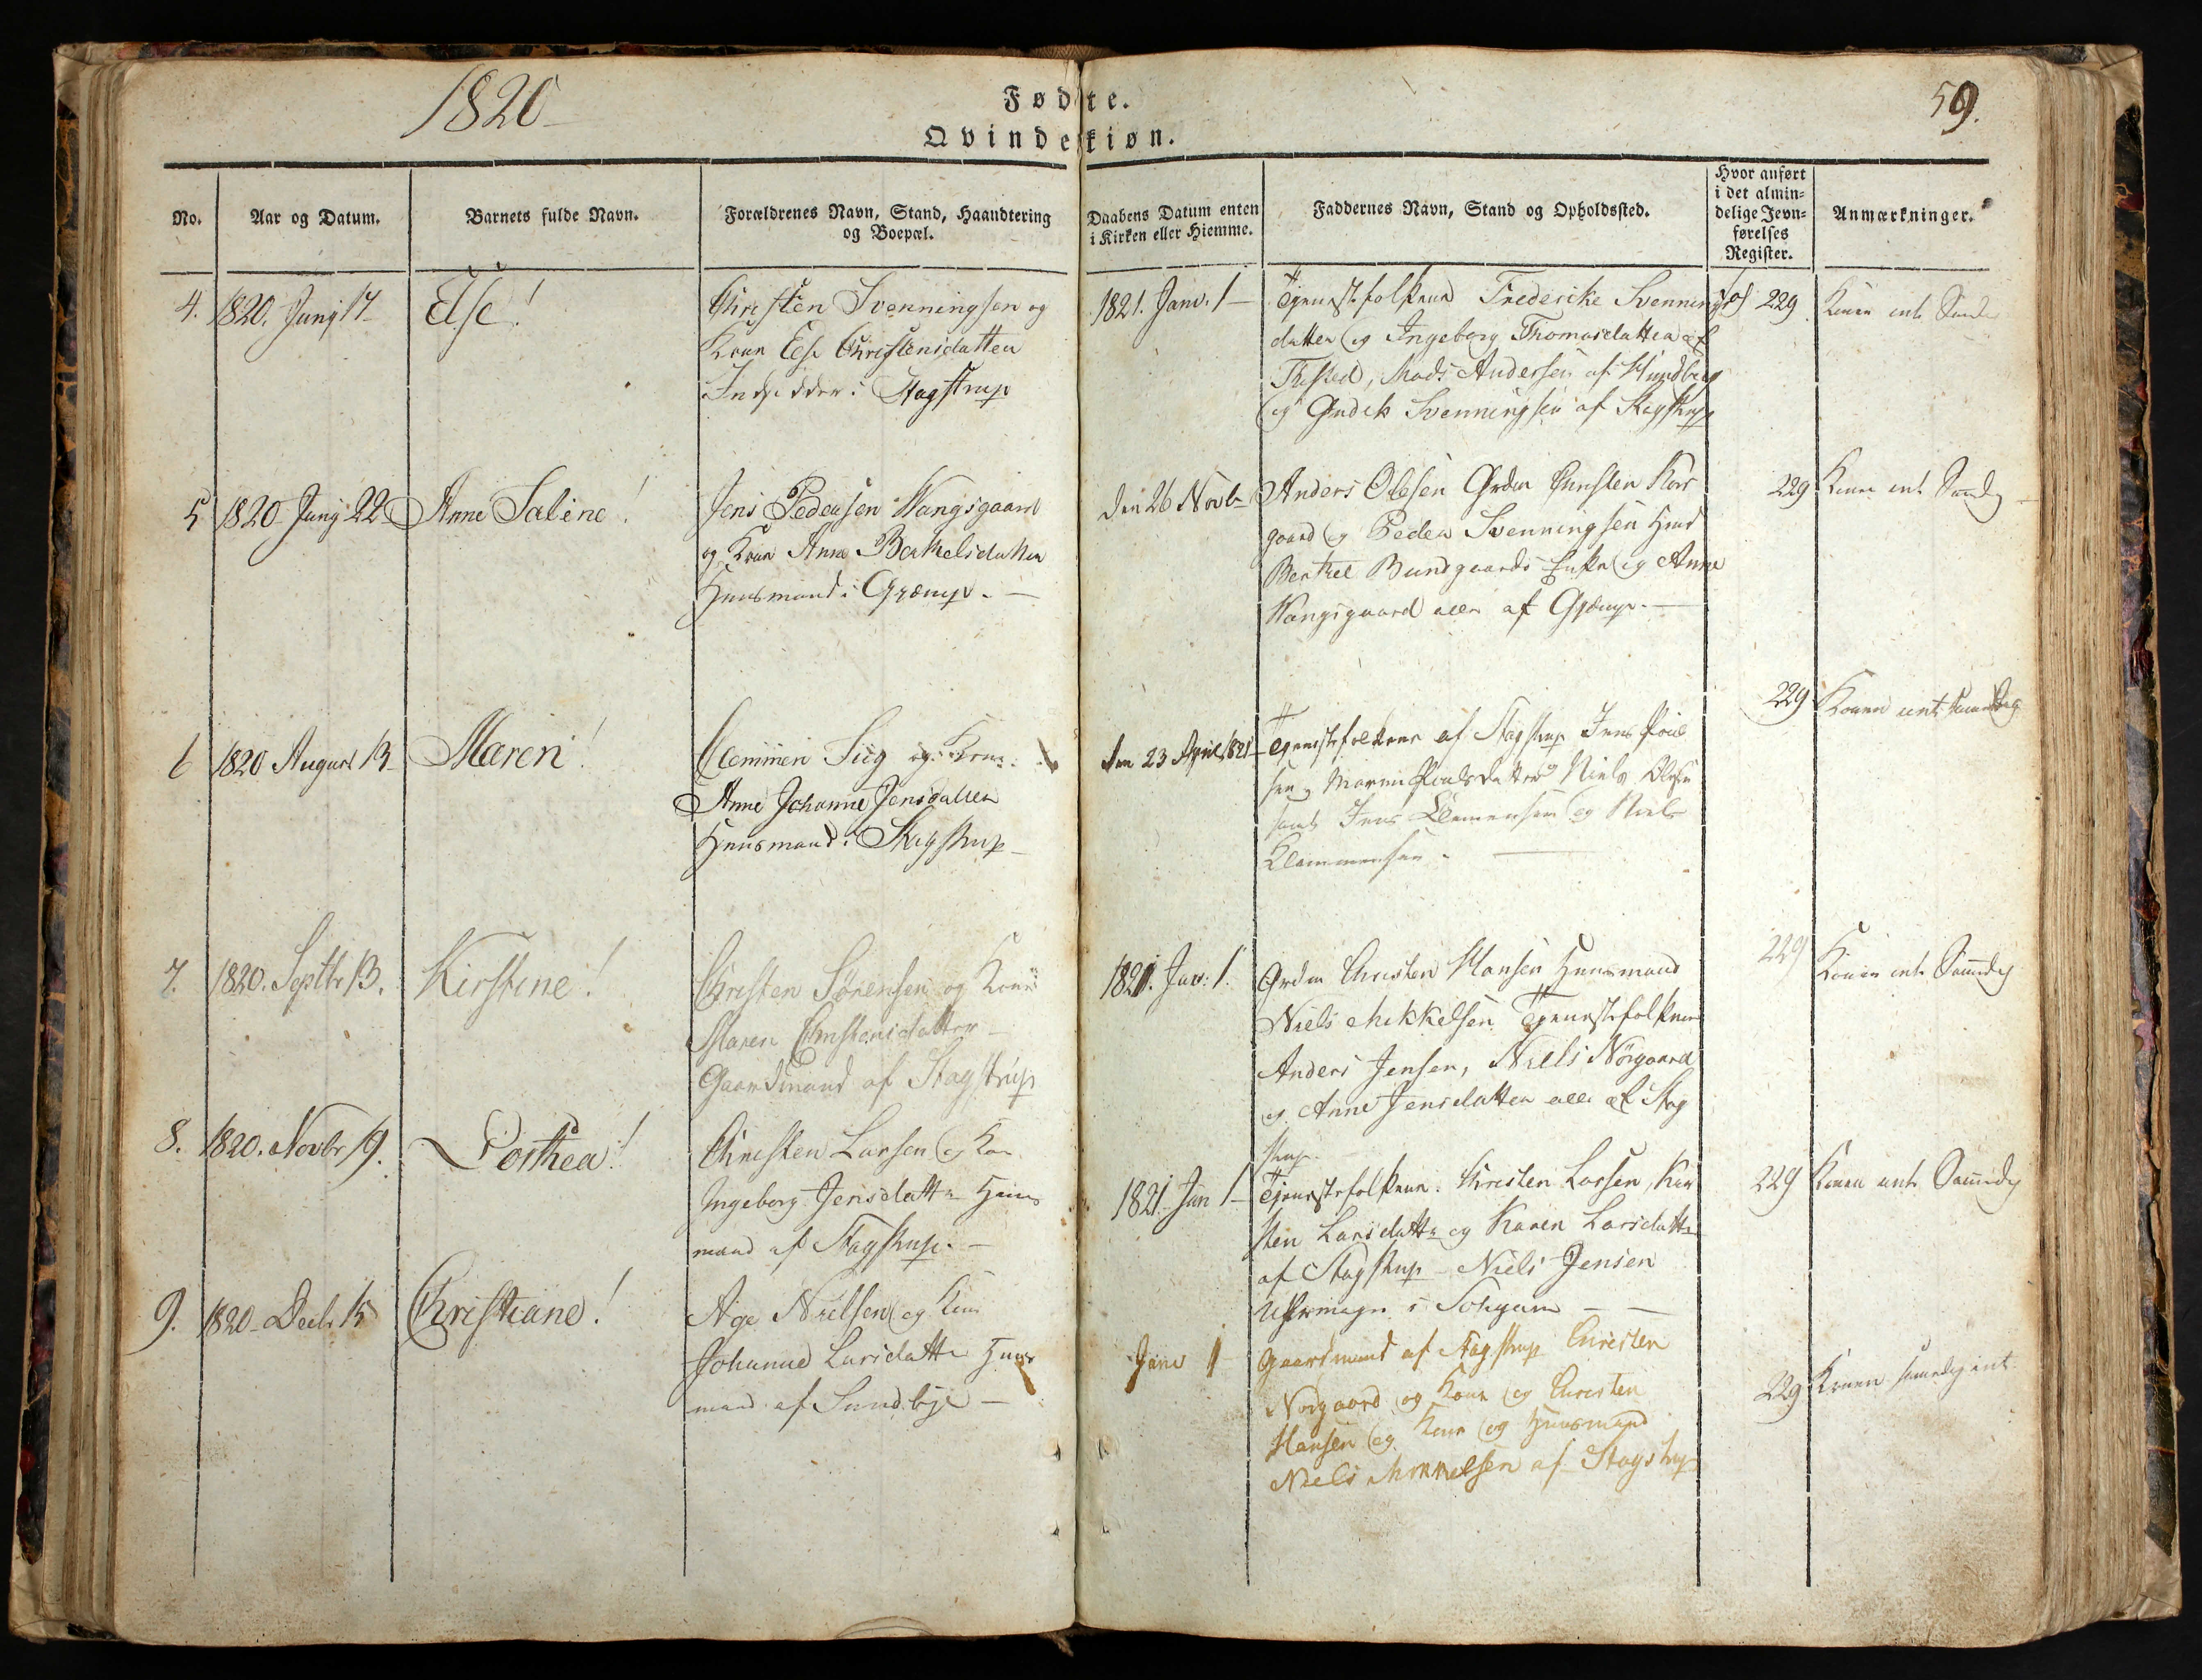 1820
Fødte.
Qvindekiøn.
59.
No.
Aar og Datum.
Barnets fulde Navn.
Forældrenes Navn, Stand, Haandtering
og Boepæl.
Daabens Datum enten
i Kirken eller Hiemme.
Faddernes Navn, Stand og Opholdssted.
Hvor anført
i det almin-
delige Jevn-
førelses
Register.
Anmærkninger.
4.
1820. Junj 17
Else!
Christen Svenningsen og
Kone Else Christensdatter
Indsidder i Stagstrup
1821. Janv. 1
Tjenestefolkene Fredericke Svennings
datter og Ingeborg Thomasdatter af
Thisted, Mads Andersen af Hundborg
og Svenningsen af Stagstrup
229
Konen int.
5
1820 Junj 22
Anne Saline!
Jens Pedersen Wangsgaard
og Kone Anne Bertelsdatter
Huusmand i
den 26 Novb
Anders Olesen Christen Kors
gaard og Peder Svenningsen
Bertel Bundgaards og Anne
Wangsgaard alle af
229
Konen int.
6
1820 August 13
Maren!
Clemmen Siig og Kone
Anne Johanne Jensdatter
Huusmand i Stagstrup
den 23 April 1821
Tjenestefolkene af Stagstrup Jens Poul
sen, Maren Poulsdatter Niels Olesen
samt Jens Clemensen og Niels
Klemmensen.
229
Konen int.
7.
1820. Septbr 13.
Kirstine!
Christen Sørensen og Kone
Maren Christensdatter
Gaardmand af Stagstrup
1821. Jan: 1.
Christen Hansen Huusmand
Niels Mikkelsen Tjenestefolkene
Anders Jensen, Niels Nörgaard
og Anne Jensdatter alle af Stag
strup.
229
Konen int.
8.
1820. Novbr 19.
Dorthea!
Christen Larsen og Kone
Ingeborg Jensdatter Huus
mand af Stagstrup.
1821. Jan 1
Tjenestefolkene. Christen Larsen, Kir
sten Larsdatter og Karen Larsdatter
af Stagstrup Niels Jensen
i
229
Konen int.
9.
1820 Decbr 15
Christiane!
Age Nielsen og Kone
Johanne Larsdatter Huus
mand af Sundbye
Janv 1
Gaardmand af Stagstrup Christen
Norgaard og Kone og Christen
Hansen og Kone og Huusmand
Niels Mikkelsen af Stagstrup
229
Konen int